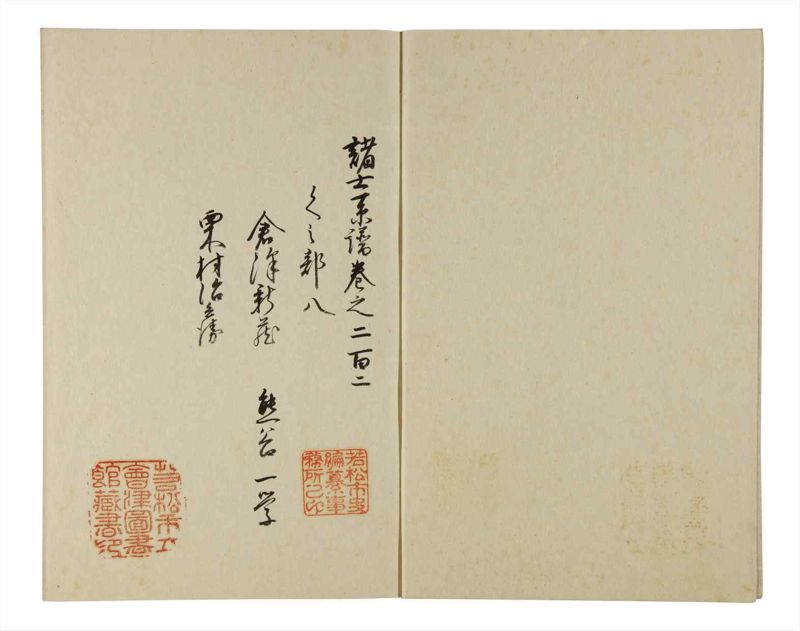 諸士系譜巻之二百二
くノ部八
倉澤新蔵
熊谷一学
栗村治兵衛
若松市史
編纂事
務所之印
若松市立
會津圖書
館蔵書印